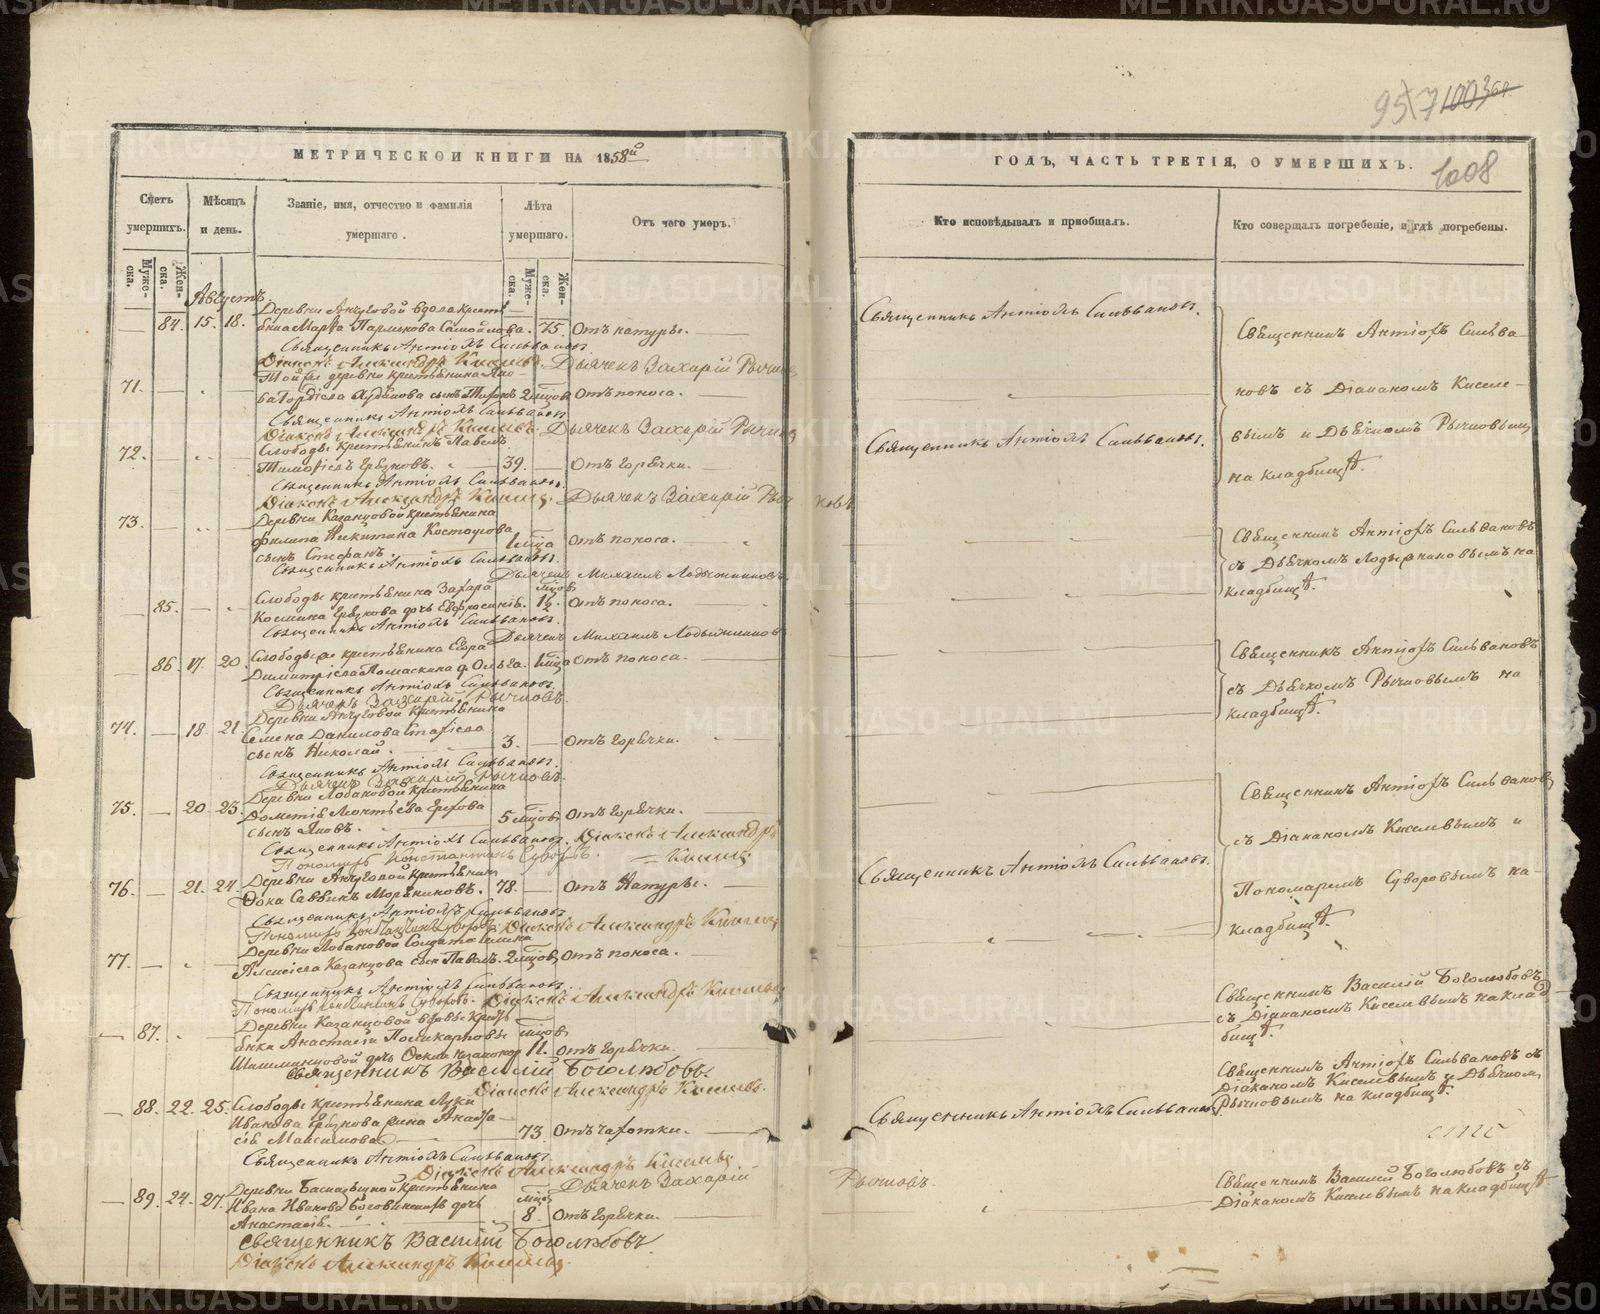 95
1008
МЕТРИЧЕСКОЙ КНИГИ НА 1858й
Счетъ умершихъ.
Муже- ска.
Жен- ска.
Мѣсяцъ и день.
Званіе, имя, отчество и фамилія умершаго.
Лѣта умершаго.
Муже- ска.
Жен- ска.
Отъ чего умеръ.
Августъ
Деревни Анчуговой вдова кресть
84. 15. 18. янка Марѳа Парменова Самойлова. 75. Отъ натуры.
Священникъ Антіохъ Сильвановъ.
Діаконъ Александръ Киселевъ. Дьячекъ Захарій Рычковъ
Той же деревни крестьянина
71. сынъ 2 мцовъ Отъ поноса.
Священникъ Антіохъ Сильвановъ
Діаконъ Александръ Киселевъ. Дьячекъ Захарій Рычковъ
Слободы крестьянинъ Павелъ
72. 39. Отъ горячки.
Священникъ Антіохъ Сильвановъ.
Діаконъ Александръ Киселевъ. Дьячекъ Захарій Рычковъ
Деревни Казанцовой крестьянина
73. Филипа Никитина Костоусова
сынъ Стефанъ. 1 мца Отъ поноса.
Священникъ Антіохъ Сильвановъ.
Дьячекъ Михаилъ
Слободы крестьянина Захара
85. Космина дочь Евфросинія. мцов. 1½. Отъ поноса.
Священникъ Антіохъ Сильвановъ.
Дьячекъ Михаилъ
Слободы крестьянина Егора
86. 17. 20. Димитріева д. Ольга. 1 мца Отъ поноса.
Священникъ Антіохъ Сильвановъ.
Дьячекъ Захарій Рычковъ.
Деревни Анчуговой крестьянина
74. 18. 21. Семена Данилова
сынъ Николай. 3. Отъ горячки.
Священникъ Антіохъ Сильвановъ.
Дьячекъ Захарій Рычковъ.
Деревни Лобановой крестьянина
75. 20. 23. Дометія Леонтьева
сынъ Яковъ. 5 мцовъ Отъ горячки.
Священникъ Антіохъ Сильвановъ. Діаконъ Александръ
Пономарь Константинъ Суворовъ. Киселевъ
Деревни Анчуговой крестьянинъ
76. 21. 24. Фока Саввинъ 78. Отъ Натуры.
Священникъ Антіохъ Сильвановъ
Пономарь Константинъ Суворовъ. Діаконъ Александръ Киселевъ
Деревни Лобановой Солдата
77. Алексіева Казанцова сынъ Павелъ. 2 мцов. Отъ поноса.
Священникъ Антіохъ Сильвановъ.
Пономарь Константинъ Суворовъ. Діаконъ Александръ Киселевъ
Деревни Казанцовой вдовы кресть
87. янки Анастасіи Поликарповы мцов.
дочь 11. Отъ горячки.
Священникъ Василій Боголюбовъ.
Діаконъ Александръ Киселевъ.
88. 22. 25. Слободы крестьянина Луки
Иванова жена Анаста-
сія Максимова 73. Отъ чахотки.
Священникъ Антіохъ Сильвановъ.
Діаконъ Александръ Киселевъ
Дьячекъ Захарій
89. 24. 27. Деревни крестьянина
Ивана Иванова дочь мцов
Анастасія. 8. Отъ горячки.
Священникъ Василій Боголюбовъ.
Діаконъ Александръ Киселевъ
ГОДЪ, ЧАСТЬ ТРЕТІЯ, О УМЕРШИХЪ.
Кто исповѣдывалъ и пріобщалъ.
Кто совершалъ погребеніе, и гдѣ погребены.
Священникъ Антіохъ Сильвановъ.
Священникъ Антіохъ Сильвановъ.
Священникъ Антіохъ Сильвановъ.
Священникъ Антіохъ Сильвановъ.
Рычковъ.
Священникъ Антіохъ Сильва
новъ съ Діакономъ Киселе-
вымъ и Дьячкомъ Рычковымъ
на кладбищѣ.
Священникъ Антіохъ Сильвановъ
съ Дьячкомъ на
кладбищѣ.
Священникъ Антіохъ Сильвановъ
съ Дьячкомъ Рычковымъ на
кладбищѣ.
Священникъ Антіохъ Сильвановъ
съ Діакономъ Киселевымъ и
Пономаремъ Суворовымъ на
кладбищѣ.
Священникъ Василій Боголюбовъ
съ Діакономъ Киселевымъ на клад
бищѣ.
Священникъ Антіохъ Сильвановъ съ
Діакономъ Киселевымъ и Дьячком
Рычковымъ на кладбищѣ.
Священникъ Василій Боголюбовъ съ
Діакономъ Киселевымъ на кладбищѣ
METRIKI.GASO-URAL.RU